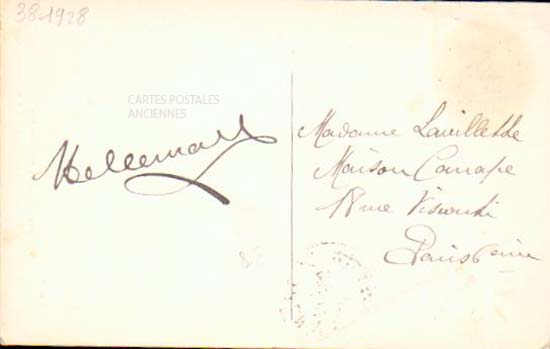 38-1928
CARTES POSTALES
ANCIENNES
Madame Lavillette
Maison Canape
18 rue Visconti
Paris 6eme